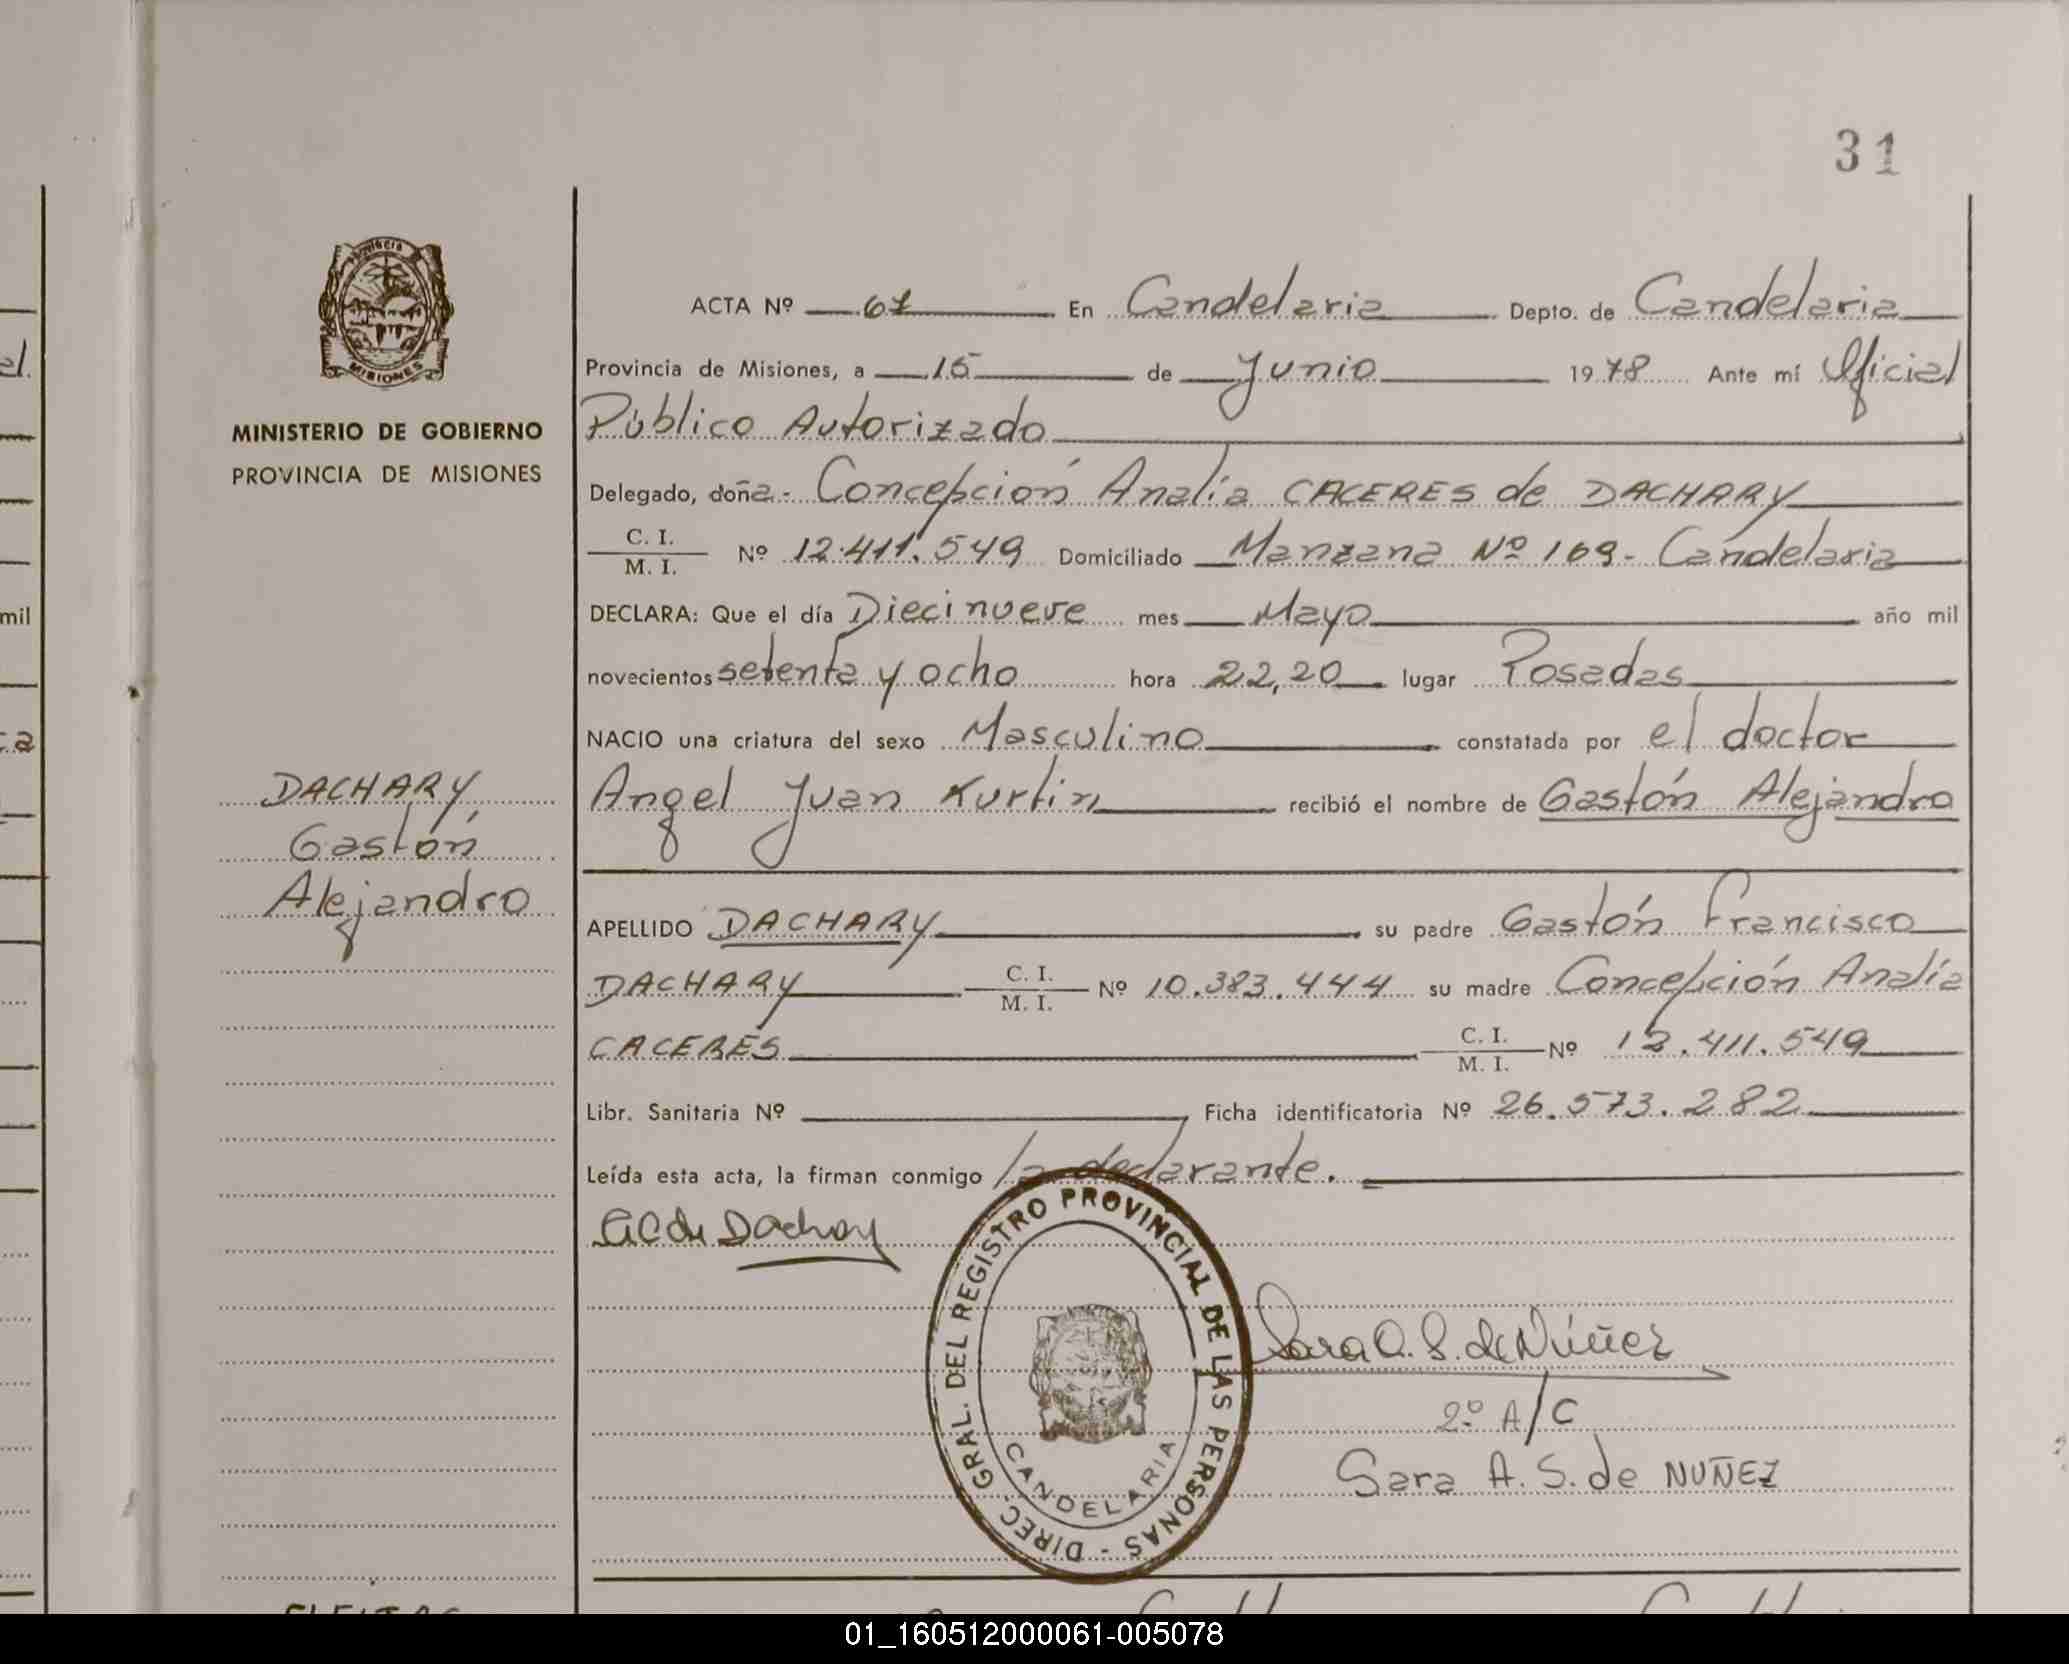 31
PROVINCIA
MISIONES
MINISTERIO DE GOBIERNO
PROVINCIA DE MISIONES
DACHARY
Gastón
Alejandro
ACTA Nº 61 En Candelaria Depto. de Candelaria
Provincia de Misiones, a 15 de Junio 1978 Ante mí Oficial
Público Autorizado
Delegado, doña- Concepción Analía CACERES de DACHARY
C. I.
M. I. Nº 12.411.549 Domiciliado Manzana Nº 169- Candelaria
DECLARA: Que el día Diecinueve mes Mayo año mil
novecientos setenta y ocho hora 22,20 lugar Posadas
NACIO una criatura del sexo Masculino constatada por el doctor
Angel Juan Kurtin recibió el nombre de Gastón Alejandro
APELLIDO DACHARY su padre Gastón Francisco
DACHARY C. I. M. I. Nº 10.383.444 su madre Concepción Analía
CACERES C. I. M. I. Nº 12.411.549
Libr. Sanitaria Nº Ficha identificatoria Nº 26.573.282
Leída esta acta, la firman conmigo la declarante.
C de Dachary
DIREC. GRAL. DEL REGISTRO PROVINCIAL DE LAS PERSONAS -
CANDELARIA
Sara A. S. de Núñez
2º A/C
Sara A. S. de NUÑEZ
01_160512000061-005078